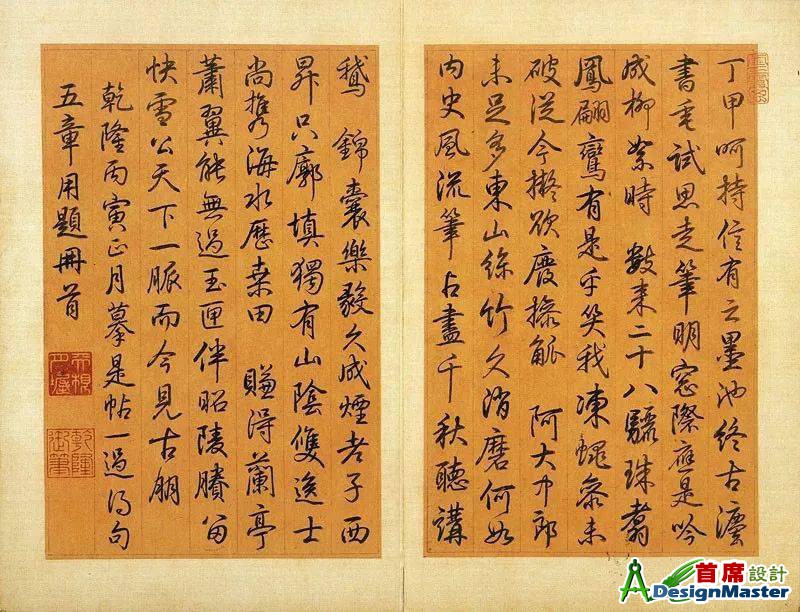 丁甲呵持信有之墨池終古瀋
書毫試思走筆明窓際應是吟
成柳絮時 數來二十八驪珠翥
鳳翩鸞有是乎笑我凍蠅參未
破從今擬欲廢操觚 阿大中郎
未足多東山絲竹久消磨何如
內史風流筆占盡千秋聽講
鵝 錦囊樂毅久成煙老子西
昇只廓填獨有山陰雙逸士
尚攜海水歷桑田 賺得蘭亭
蕭翼能無過玉匣伴昭陵賸留
快雪公天下一脈而今見古朋
乾隆丙寅正月摹是帖一過得句
五章用題冊首
乾隆
御筆
首席設計
ADesignMaster